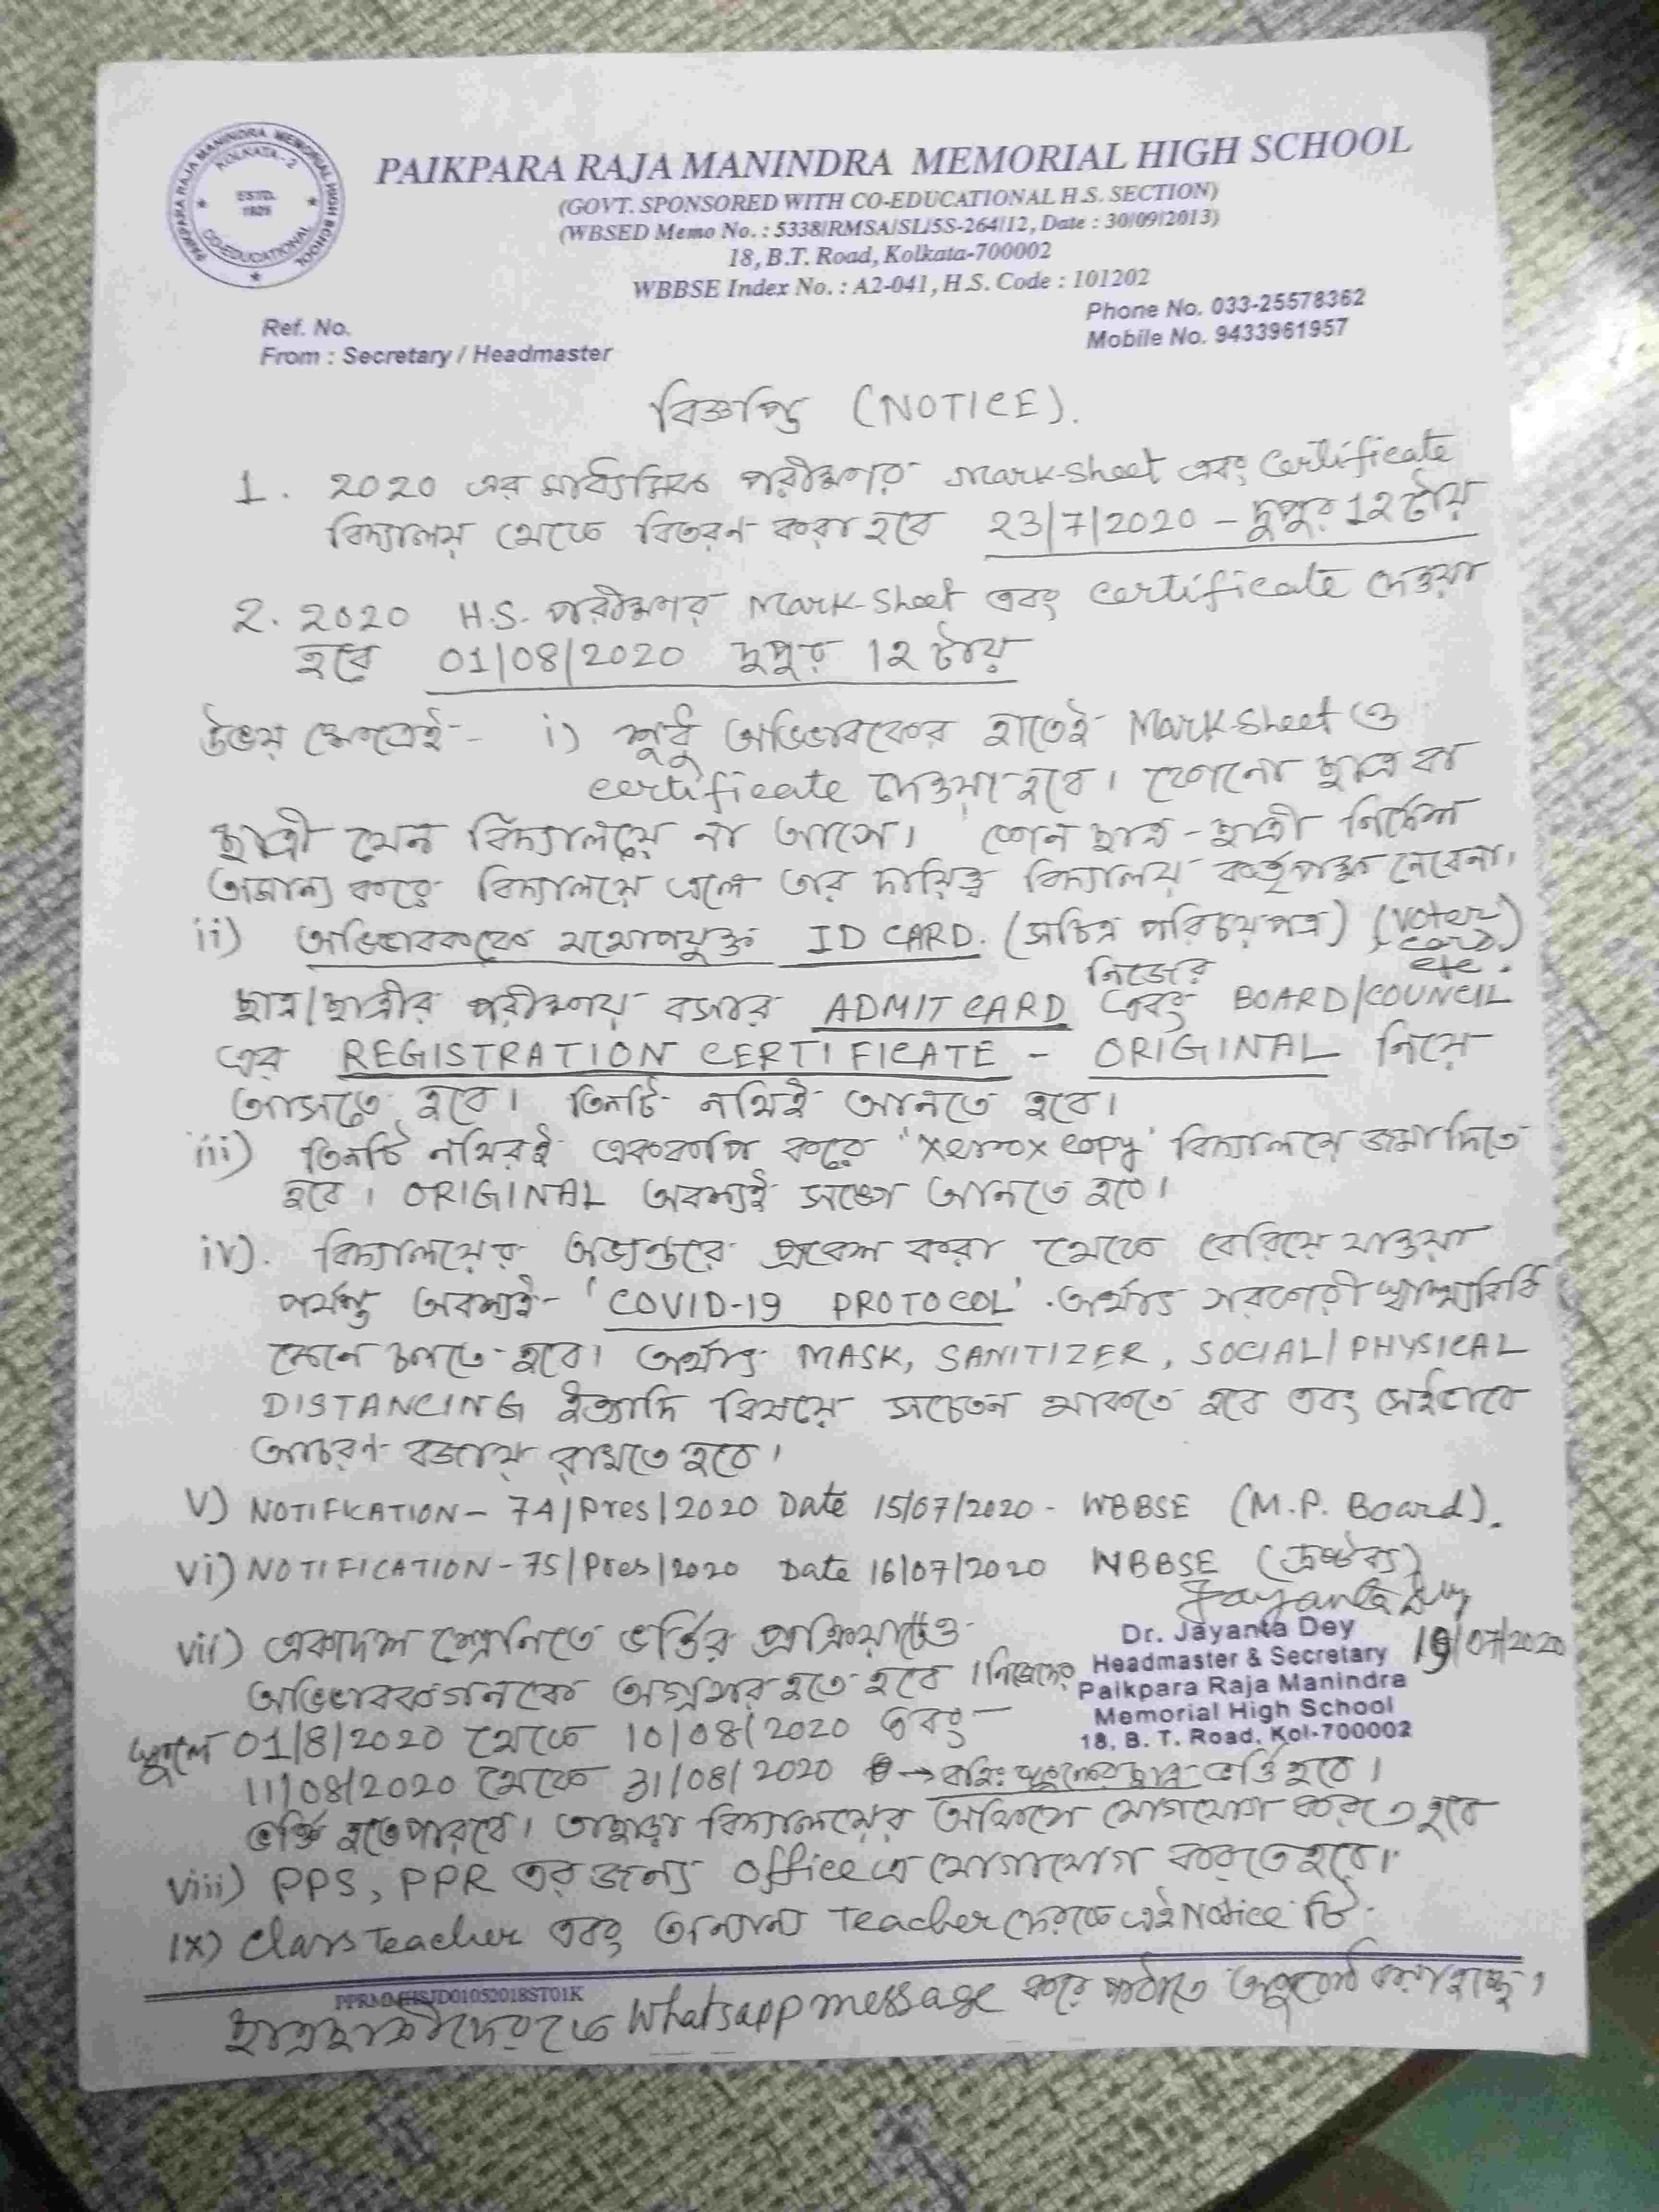 PAIKPARA RAJA MANINDRA MEMORIAL HIGH SCHOOL
KOLKATA - 2
ESTD.
CO-EDUCATIONAL
PAIKPARA RAJA MANINDRA MEMORIAL HIGH SCHOOL
(GOVT. SPONSORED WITH CO-EDUCATIONAL H.S. SECTION)
(WBSED Memo No. : 5338/RMSA/SL/5S-264/12, Date : 30/09/2013)
18, B.T. Road, Kolkata-700002
WBBSE Index No. : A2-041, H.S. Code : 101202
Phone No. 033-25578362
Mobile No. 9433961957
Ref. No.
From : Secretary / Headmaster
বিজ্ঞপ্তি (NOTICE).
1. 2020 এর মাধ্যমিক পরীক্ষার Mark-Sheet এবং Certificate
বিদ্যালয় থেকে বিতরণ করা হবে 23/7/2020 - দুপুর 12 টায়
2. 2020 H.S. পরীক্ষার Mark-Sheet এবং certificate দেওয়া
হবে 01/08/2020 দুপুর 12 টায়
উভয় ক্ষেত্রেই - i) শুধু অভিভাবকের হাতেই Mark-Sheet ও
certificate দেওয়া হবে। কোনো ছাত্র বা
ছাত্রী যেন বিদ্যালয়ে না আসে। কোন ছাত্র-ছাত্রী নির্দেশ
অমান্য করে বিদ্যালয়ে এলে তার দায়িত্ব বিদ্যালয় কর্তৃপক্ষ নেবেনা।
ii) অভিভাবককে যথোপযুক্ত ID CARD. (সচিত্র পরিচয়পত্র) (Voter card etc.)
নিজের
ছাত্র/ছাত্রীর পরীক্ষায় বসার ADMIT CARD এবং BOARD/COUNCIL
এর REGISTRATION CERTIFICATE - ORIGINAL নিয়ে
আসতে হবে। তিনটি নথিই আনতে হবে।
iii) তিনটি নথিরই এককপি করে 'Xerox copy' বিদ্যালয়ে জমা দিতে
হবে। ORIGINAL অবশ্যই সঙ্গে আনতে হবে।
iv). বিদ্যালয়ের অভ্যন্তরে প্রবেশ করা থেকে বেরিয়ে যাওয়া
পর্যন্ত অবশ্যই - 'COVID-19 PROTOCOL' . অর্থাৎ সরকারী স্বাস্থ্যবিধি
মেনে চলতে হবে। অর্থাৎ MASK, SANITIZER, SOCIAL/PHYSICAL
DISTANCING ইত্যাদি বিষয়ে সচেতন থাকতে হবে এবং সেইভাবে
আচরণ বজায় রাখতে হবে।
V) NOTIFICATION - 74/Pres/2020 Date 15/07/2020 - WBBSE (M.P. Board).
vi) NOTIFICATION - 75/Pres/2020 Date 16/07/2020 WBBSE (দ্রষ্টব্য)
Jayanta Dey
Dr. Jayanta Dey
Headmaster & Secretary
Paikpara Raja Manindra
Memorial High School
18, B. T. Road, Kol-700002
vii) একাদশ শ্রেণিতে ভর্ত্তির প্রক্রিয়াটেও
অভিভাবকগনকে অগ্রসর হতে হবে। নিজেদের
স্কুলে 01/8/2020 থেকে 10/08/2020 এবং
11/08/2020 থেকে 31/08/2020 → বহিঃ স্কুলের ছাত্র ভর্ত্তি হবে।
ভর্ত্তি হতে পারবে। তাছাড়া বিদ্যালয়ের অফিসে যোগাযোগ করতে হবে
viii) PPS, PPR এর জন্য office এ যোগাযোগ করতে হবে।
ix) Class Teacher এবং অন্যান্য Teacher দেরকে এই Notice টি
ছাত্রছাত্রীদেরকে Whatsapp message করে পাঠাতে অনুরোধ করা হচ্ছে।